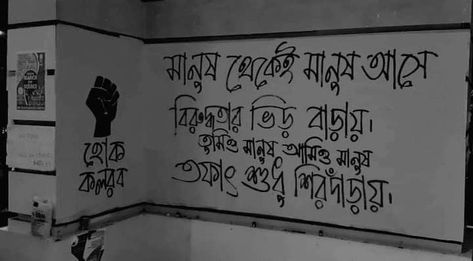 মানুষ থেকেই মানুষ আসে
বিরুদ্ধতার ভিড় বাড়ায়।
তুমিও মানুষ, আমিও মানুষ
তফাৎ শুধু শিরদাঁড়ায়।
হোক
কলরব